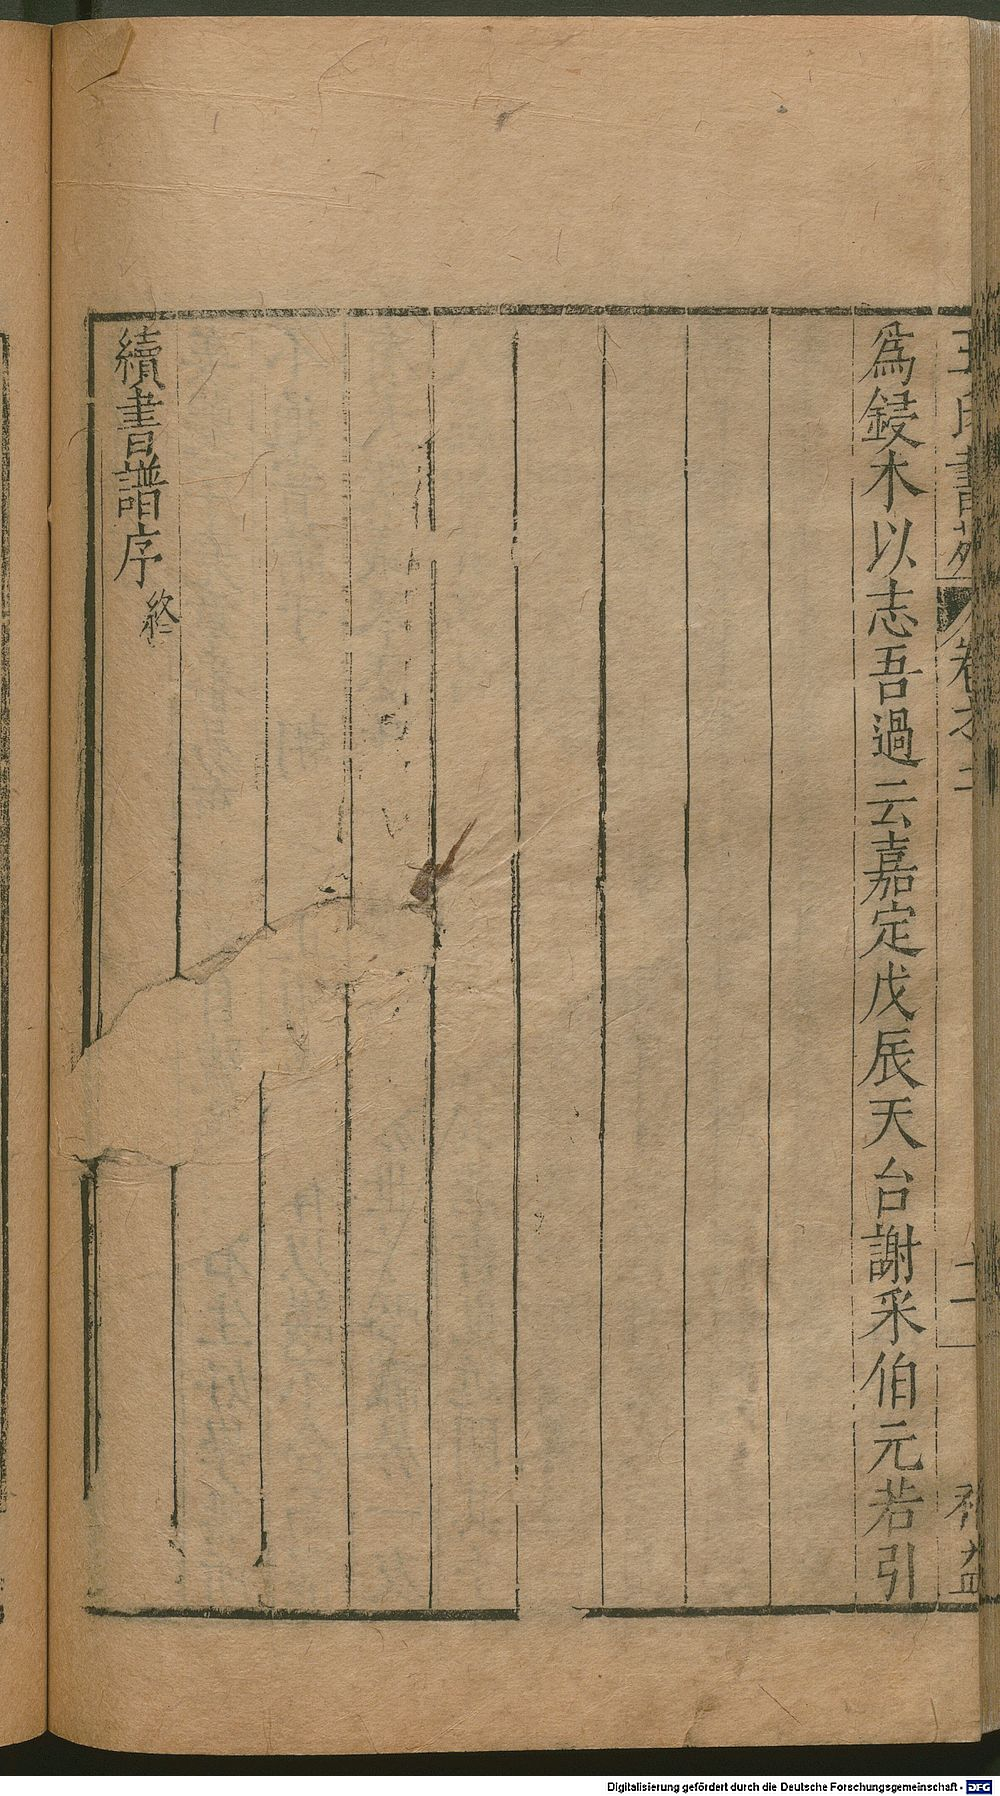 王氏書苑 卷之二 二 補益
爲鋟木以志吾過云嘉定戊辰天台謝采伯元若引
續書譜序終
Digitalisierung gefördert durch die Deutsche Forschungsgemeinschaft - DFG